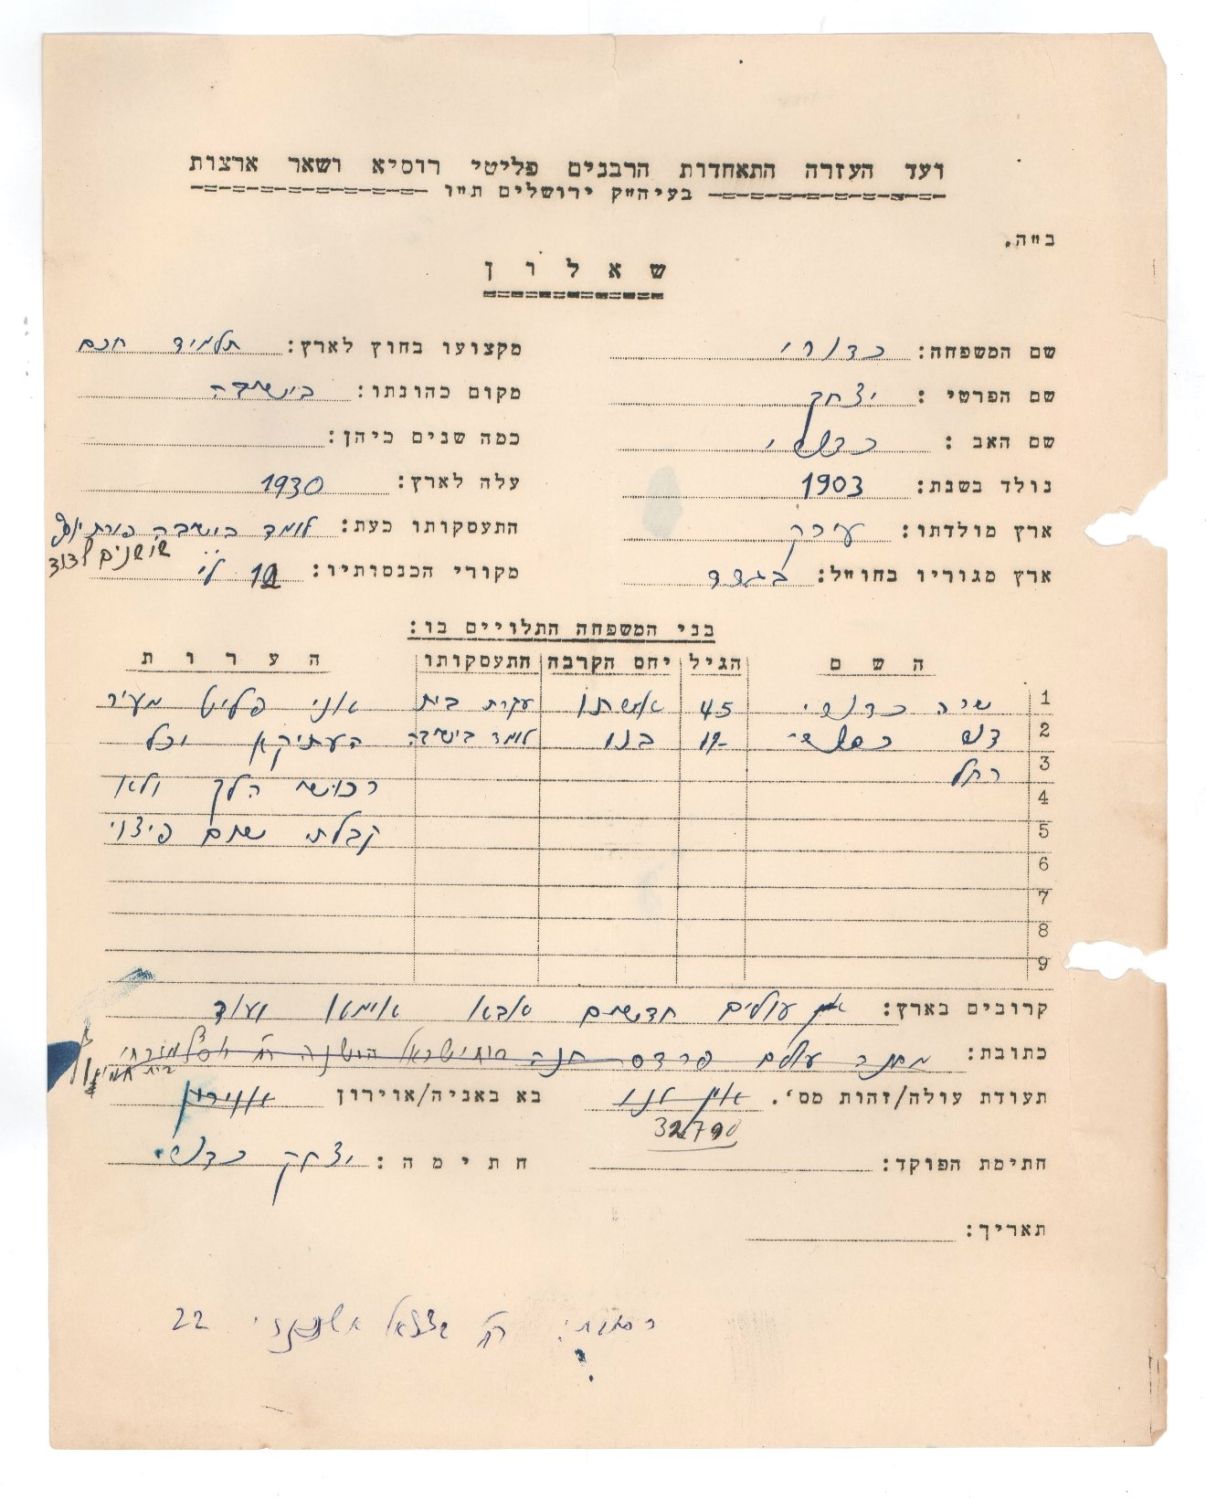 ועד העזרה התאחדות הרבנים פליטי רוסיא ושאר ארצות
בעיה"ק ירושלים ת"ו
ב"ה.
שאלון
שם המשפחה: כדורי
מקצועו בחוץ לארץ: תלמיד חכם
שם הפרטי: יצחק
מקום כהונתו: בישיבה
שם האב:
כמה שנים כיהן:
נולד בשנת: 1903
עלה לארץ: 1930
ארץ מולדתו: עירק
התעסקותו כעת: לומד בישיבה פורת יוסף
שושנים לדוד
ארץ מגוריו בחו"ל: בגדד
מקורי הכנסותיו: 12 ל"י
בני המשפחה התלויים בו:
השם הגיל יחס הקרבה התעסקותו הערות
1 שרה כדורי 45 אשתו עקרת בית אני פליט מעיר
2 דוד כדורי 19 בנו לומד בישיבה העתיקא וכל
3 רחל רכושי הלך ולא
4 קבלתי שום פיצוי
5
6
7
8
9
קרובים בארץ: עולים חדשים אבא אימא ועוד
כתובת: מחנה עולים פרדס חנה
תעודת עולה/זהות מס'. אין לנו
בא באניה/אוירון אוירון
32790
חתימת הפוקד:
חתימה: יצחק כדורי
תאריך:
רח' בצלאל אשכנזי 22